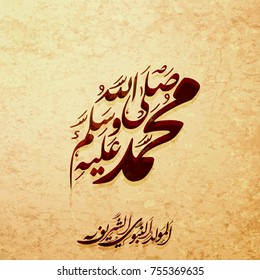 محمد صَلَّى اللَّه عليه وسلم
المولد النبوي الشريف
shutterstock.com · 755369635